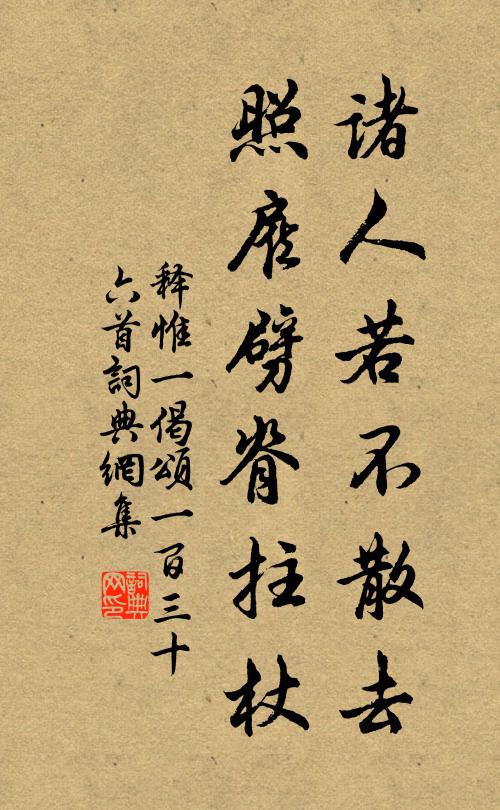 諸人若不散去
照庭劈脊拄杖
释惟一偈頌一百三十
六首詞典網集
詞典
网印